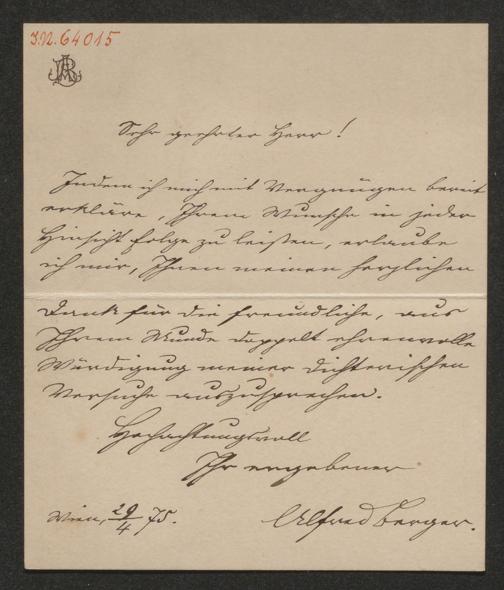 J.N. 64015
Sehr geehrter Herr!
Indem ich mich mit Vergnügen bereit
erkläre, Ihrem Wunsche in jeder
Hinsicht folge zu leisten, erlaube
ich mir, Ihnen meinen herzlichen
Dank für die freundliche, aus
Ihrem Munde doppelt ehrenvolle
Würdigung meiner dichterischen
Versuche auszusprechen.
Hochachtungsvoll
Ihr ergebener
Wien, 29/4 75.
Alfred Berger.